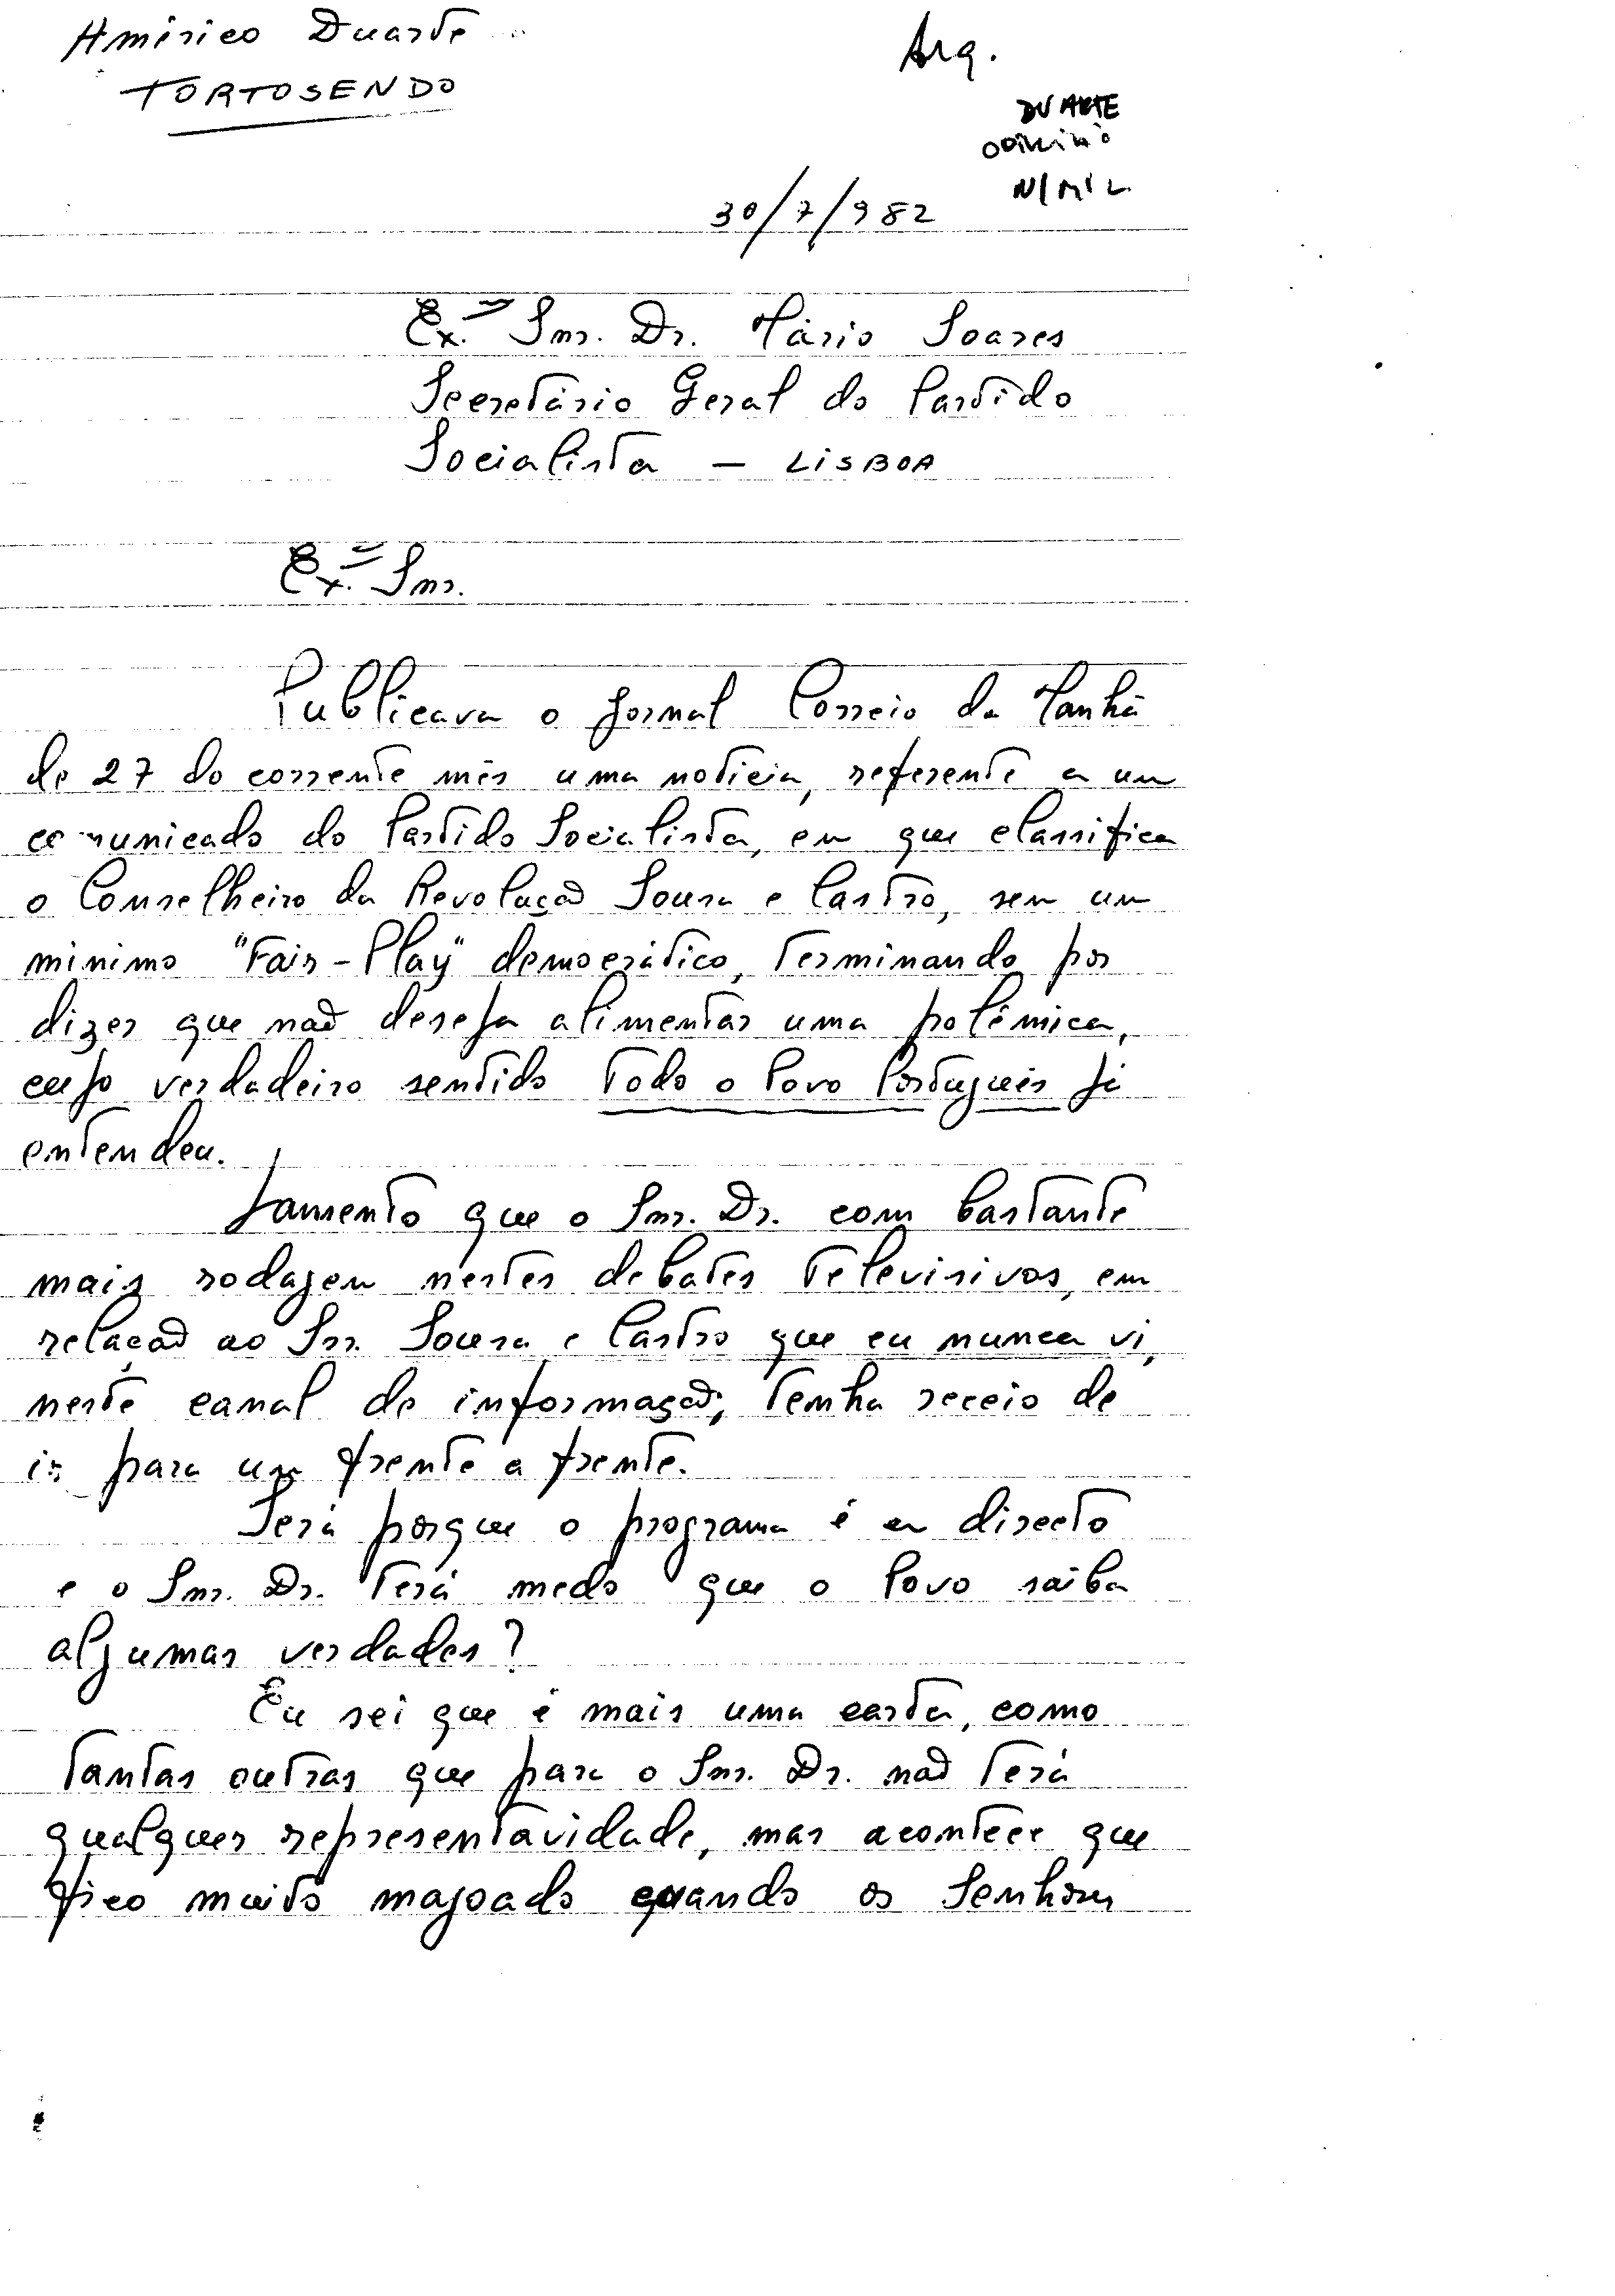 Américo Duarte
TORTOSENDO
Arq.
DUARTE
OPINIÃO
N/MIL
30/7/982
Ex.º Snr. Dr. Mário Soares
Secretário Geral do Partido
Socialista — LISBOA
Ex.º Snr.
Publicava o Jornal Correio da Manhã
de 27 do corrente mês uma noticia, referente a um
comunicado do Partido Socialista, em que classifica
o Conselheiro da Revolução Sousa e Castro, sem um
minimo "Fair-Play" democrático, terminando por
dizer que não deseja alimentar uma polémica,
cujo verdadeiro sentido todo o Povo Português já
entendeu.
Lamento que o Snr. Dr. com bastante
mais rodagem nestes debates televisivos, em
relação ao Snr. Sousa e Castro que eu nunca vi,
neste canal de informação, tenha receio de
ir para um frente a frente.
Será porque o programa é em directo
e o Snr. Dr. terá medo que o Povo saiba
algumas verdades?
Eu sei que é mais uma carta, como
tantas outras que para o Snr. Dr. não terá
qualquer representavidade, mas acontece que
fico muito magoado quando os Senhores